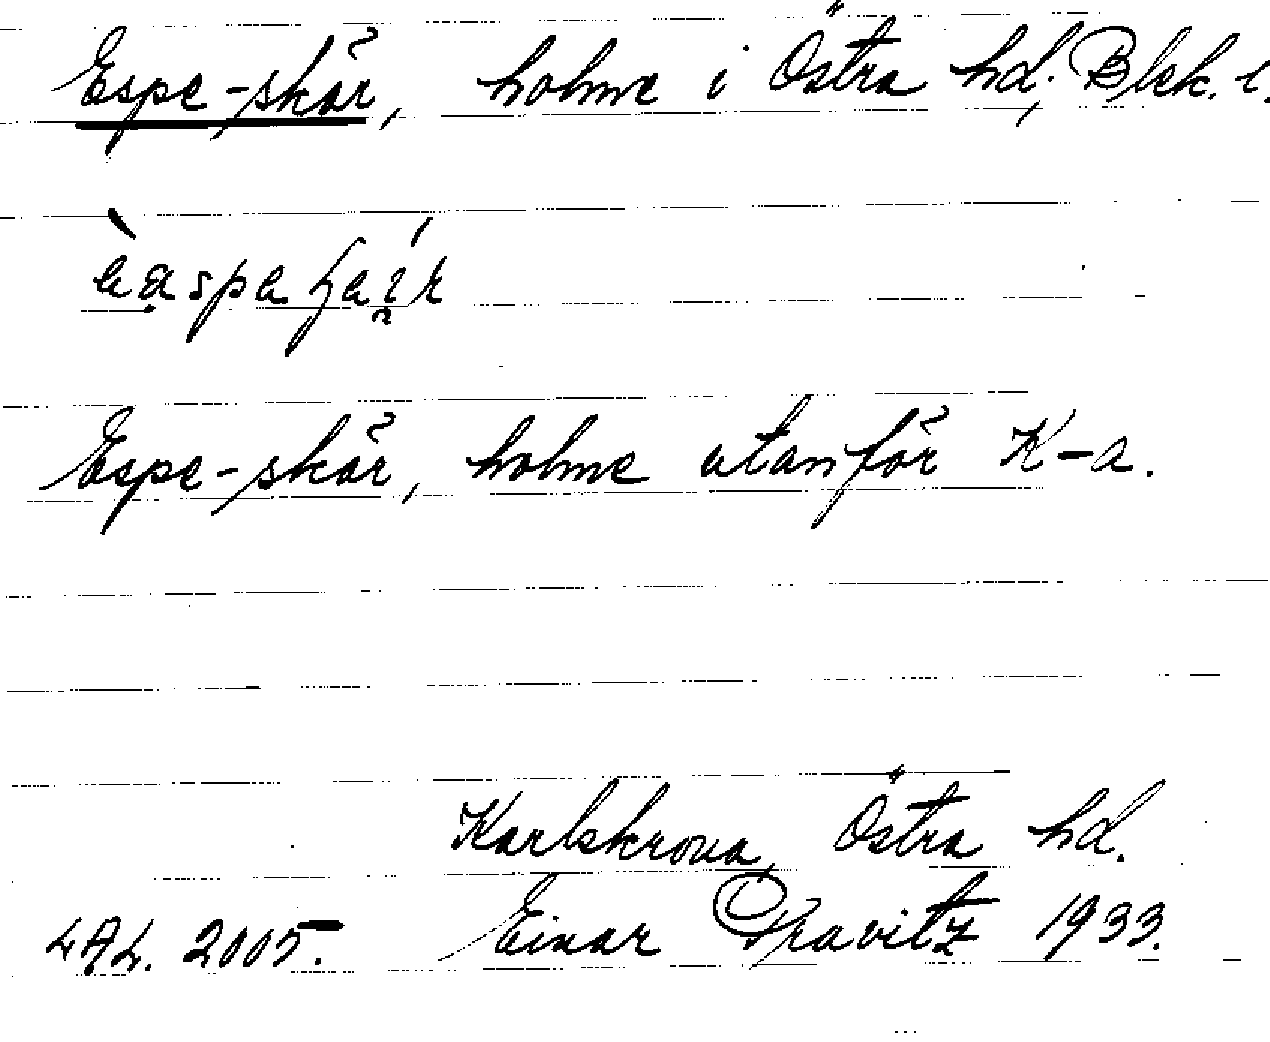 Espe-skär, holme i Östra hd, Blek. l.
Espe-skär, holme utanför K-a.
Karlskrona, Östra hd.
LAL. 2005. Einar Pravitz 1933.